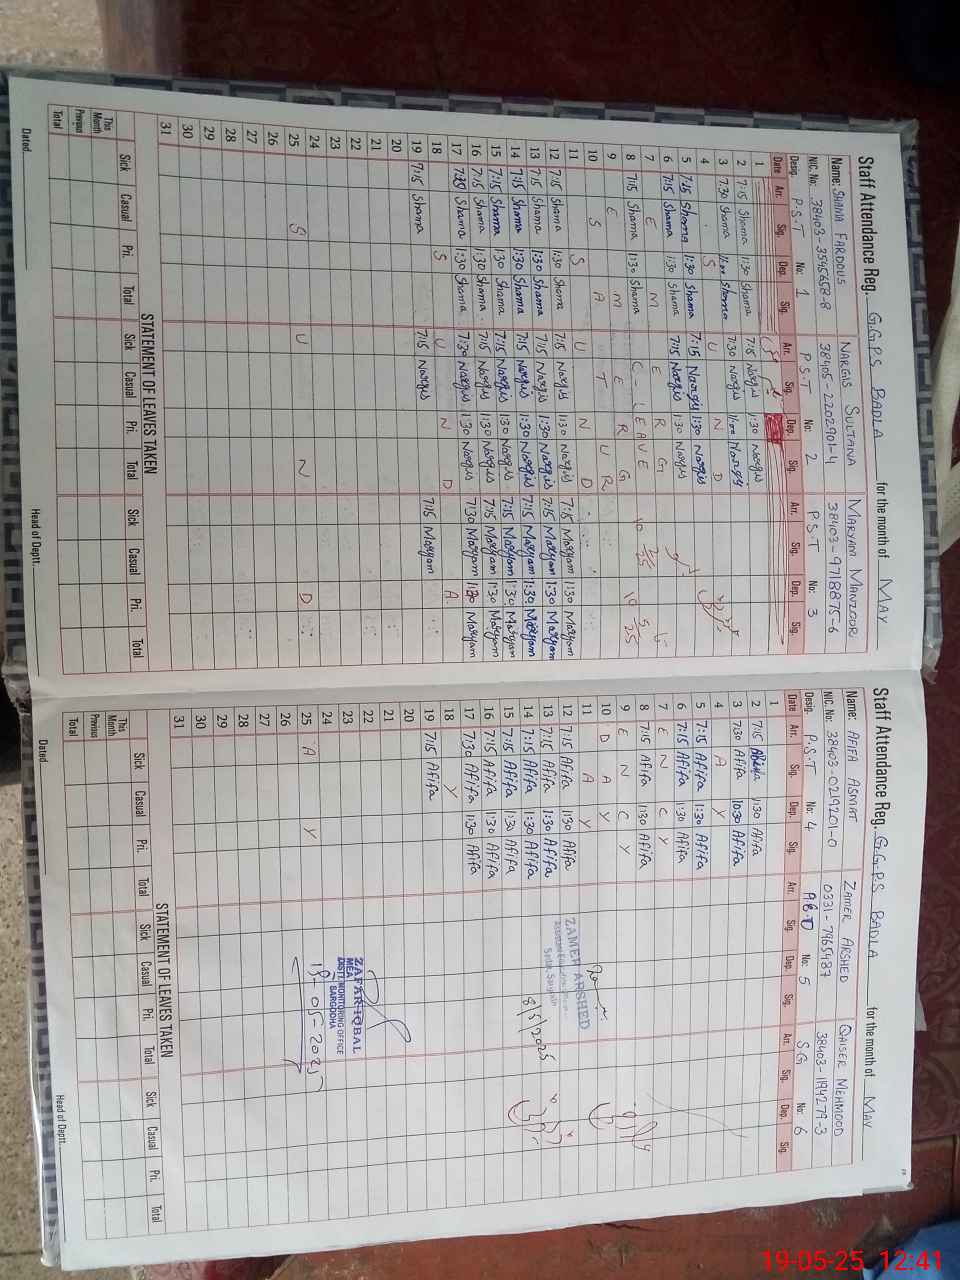 Staff Attendance Reg. G.G.P.S BADLA for the month of MAY
Name: SHAMA FARDOUS NARGIS SULTANA MARYAM MANZOOR
NIC. No: 38403-3545658-8 38405-2202901-4 38403-9718875-6
Desig. P.S.T No: 1 P.S.T No: 2 P.S.T No: 3
Date Arr. Sig. Dep. Sig. Arr. Sig. Dep. Sig. Arr. Sig. Dep. Sig.
1
2 7:15 Shama 1:30 Shama 7:15 Nargis 1:30 Nargis
3 7:30 Shama 11:00 Shama 7:30 Nargis 11:00 Nargis
4 S U N D
5 7:15 Shama 1:30 Shama 7:15 Nargis 1:30 Nargis
6 7:15 Shama 1:30 Shama 7:15 Nargis 1:30 Nargis
7 E M E R G
8 7:15 Shama 1:30 Shama C-LEAVE
9 E M E R G
10 S A T U R
11 S U N D
12 7:15 Shama 1:30 Shama 7:15 Nargis 1:30 Nargis 7:15 Maryam 1:30 Maryam
13 7:15 Shama 1:30 Shama 7:15 Nargis 1:30 Nargis 7:15 Maryam 1:30 Maryam
14 7:15 Shama 1:30 Shama 7:15 Nargis 1:30 Nargis 7:15 Maryam 1:30 Maryam
15 7:15 Shama 1:30 Shama 7:15 Nargis 1:30 Nargis 7:15 Maryam 1:30 Maryam
16 7:15 Shama 1:30 Shama 7:15 Nargis 1:30 Nargis 7:15 Maryam 1:30 Maryam
17 7:30 Shama 1:30 Shama 7:30 Nargis 1:30 Nargis 7:30 Maryam 1:30 Maryam
18 S U N D A
19 7:15 Shama 7:15 Nargis 7:15 Maryam
20
21
22
23
24
25 S U N D
26
27
28
29
30
31
STATEMENT OF LEAVES TAKEN
Sick Casual Pri. Total Sick Casual Pri. Total Sick Casual Pri. Total
This Month
Previous
Total
Dated Head of Deptt.
Staff Attendance Reg. G.G.P.S BADLA for the month of MAY
Name: AFIFA ASMAT ZAMER ARSHED QAISER MEHMOOD
NIC. No: 38403-0219201-0 0331-7965487 38403-1194279-3
Desig. P.S.T No: 4 No: 5 S.G No: 6
Date Arr. Sig. Dep. Sig. Arr. Sig. Dep. Sig. Arr. Sig. Dep. Sig.
1
2 7:15 1:30 Afifa
3 7:30 Afifa Afifa
4 A Y
5 7:15 Afifa 1:30 Afifa
6 7:15 Afifa 1:30 Afifa
7 E N C Y
8 7:15 Afifa 1:30 Afifa
9 E N C Y
10 D A Y
11 A Y
12 7:15 Afifa 1:30 Afifa
13 7:15 Afifa 1:30 Afifa
14 7:15 Afifa 1:30 Afifa
15 7:15 Afifa 1:30 Afifa
16 7:15 Afifa 1:30 Afifa
17 7:30 Afifa 1:30 Afifa
18 Y
19 7:15 Afifa
20
21
22
23
24
25 A Y
26
27
28
29
30
31
ZAMER ARSHED
8/5/2025
ZAFAR IQBAL
MEA
DISTT. MONITORING OFFICE
SARGODHA
19-05-2025
STATEMENT OF LEAVES TAKEN
Sick Casual Pri. Total Sick Casual Pri. Total Sick Casual Pri. Total
This Month
Previous
Total
Dated Head of Deptt.
19-05-25 12:41